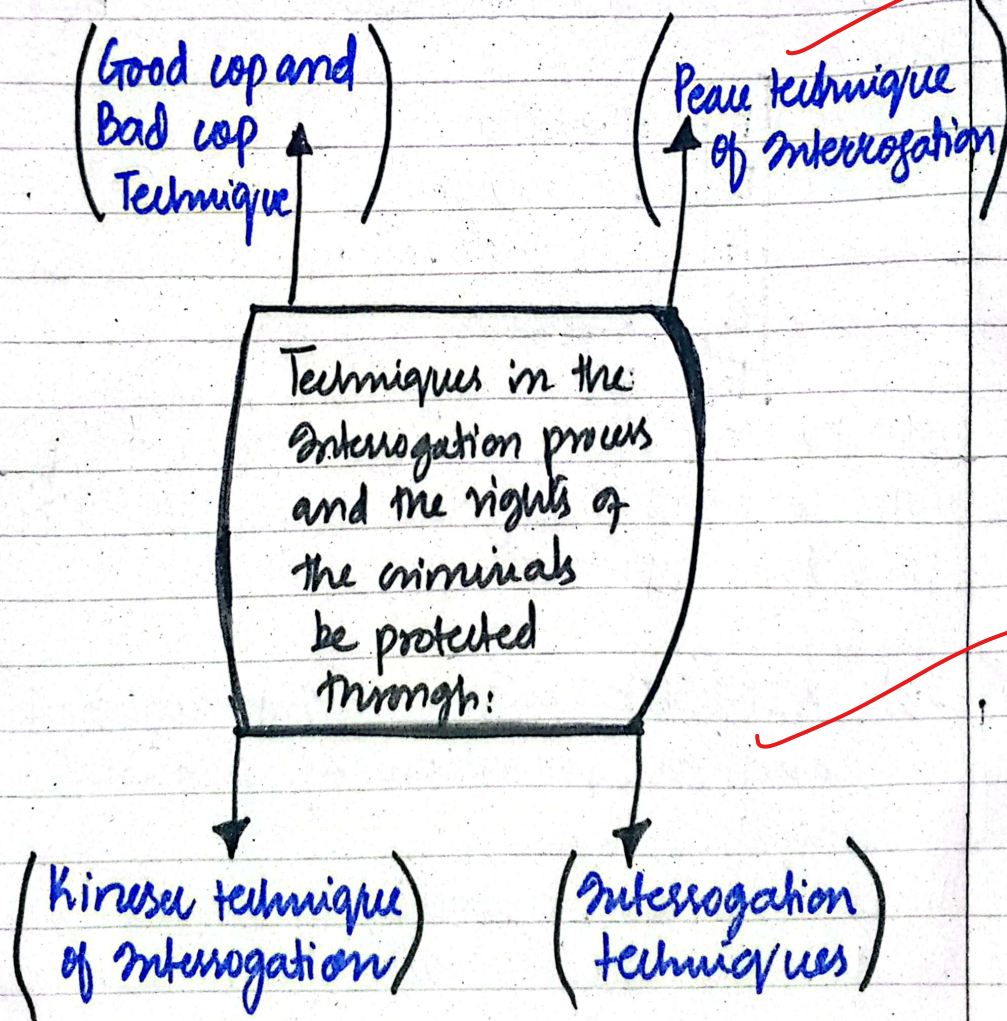 Good cop and
Bad cop
Technique
Peace technique
of Interrogation
Techniques in the
Interrogation process
and the rights of
the criminals
be protected
through:
technique
of Interrogation
Interrogation
techniques